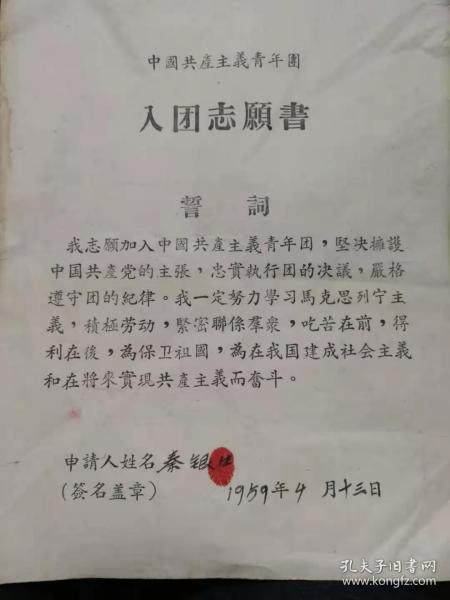 中國共產主義青年團
入团志願書
誓 詞
我志願加入中國共產主義青年团，堅决擁護
中国共產党的主張，忠實執行团的决議，嚴格
遵守团的紀律。我一定努力學习馬克思列宁主
義，積極劳动，緊密聯係羣衆，吃苦在前，得
利在後，為保卫祖國，為在我国建成社会主義
和在將來實現共產主義而奮斗。
申請人姓名 秦银
(簽名盖章) 1959年4月十三日
孔夫子旧书网
www.kongfz.com